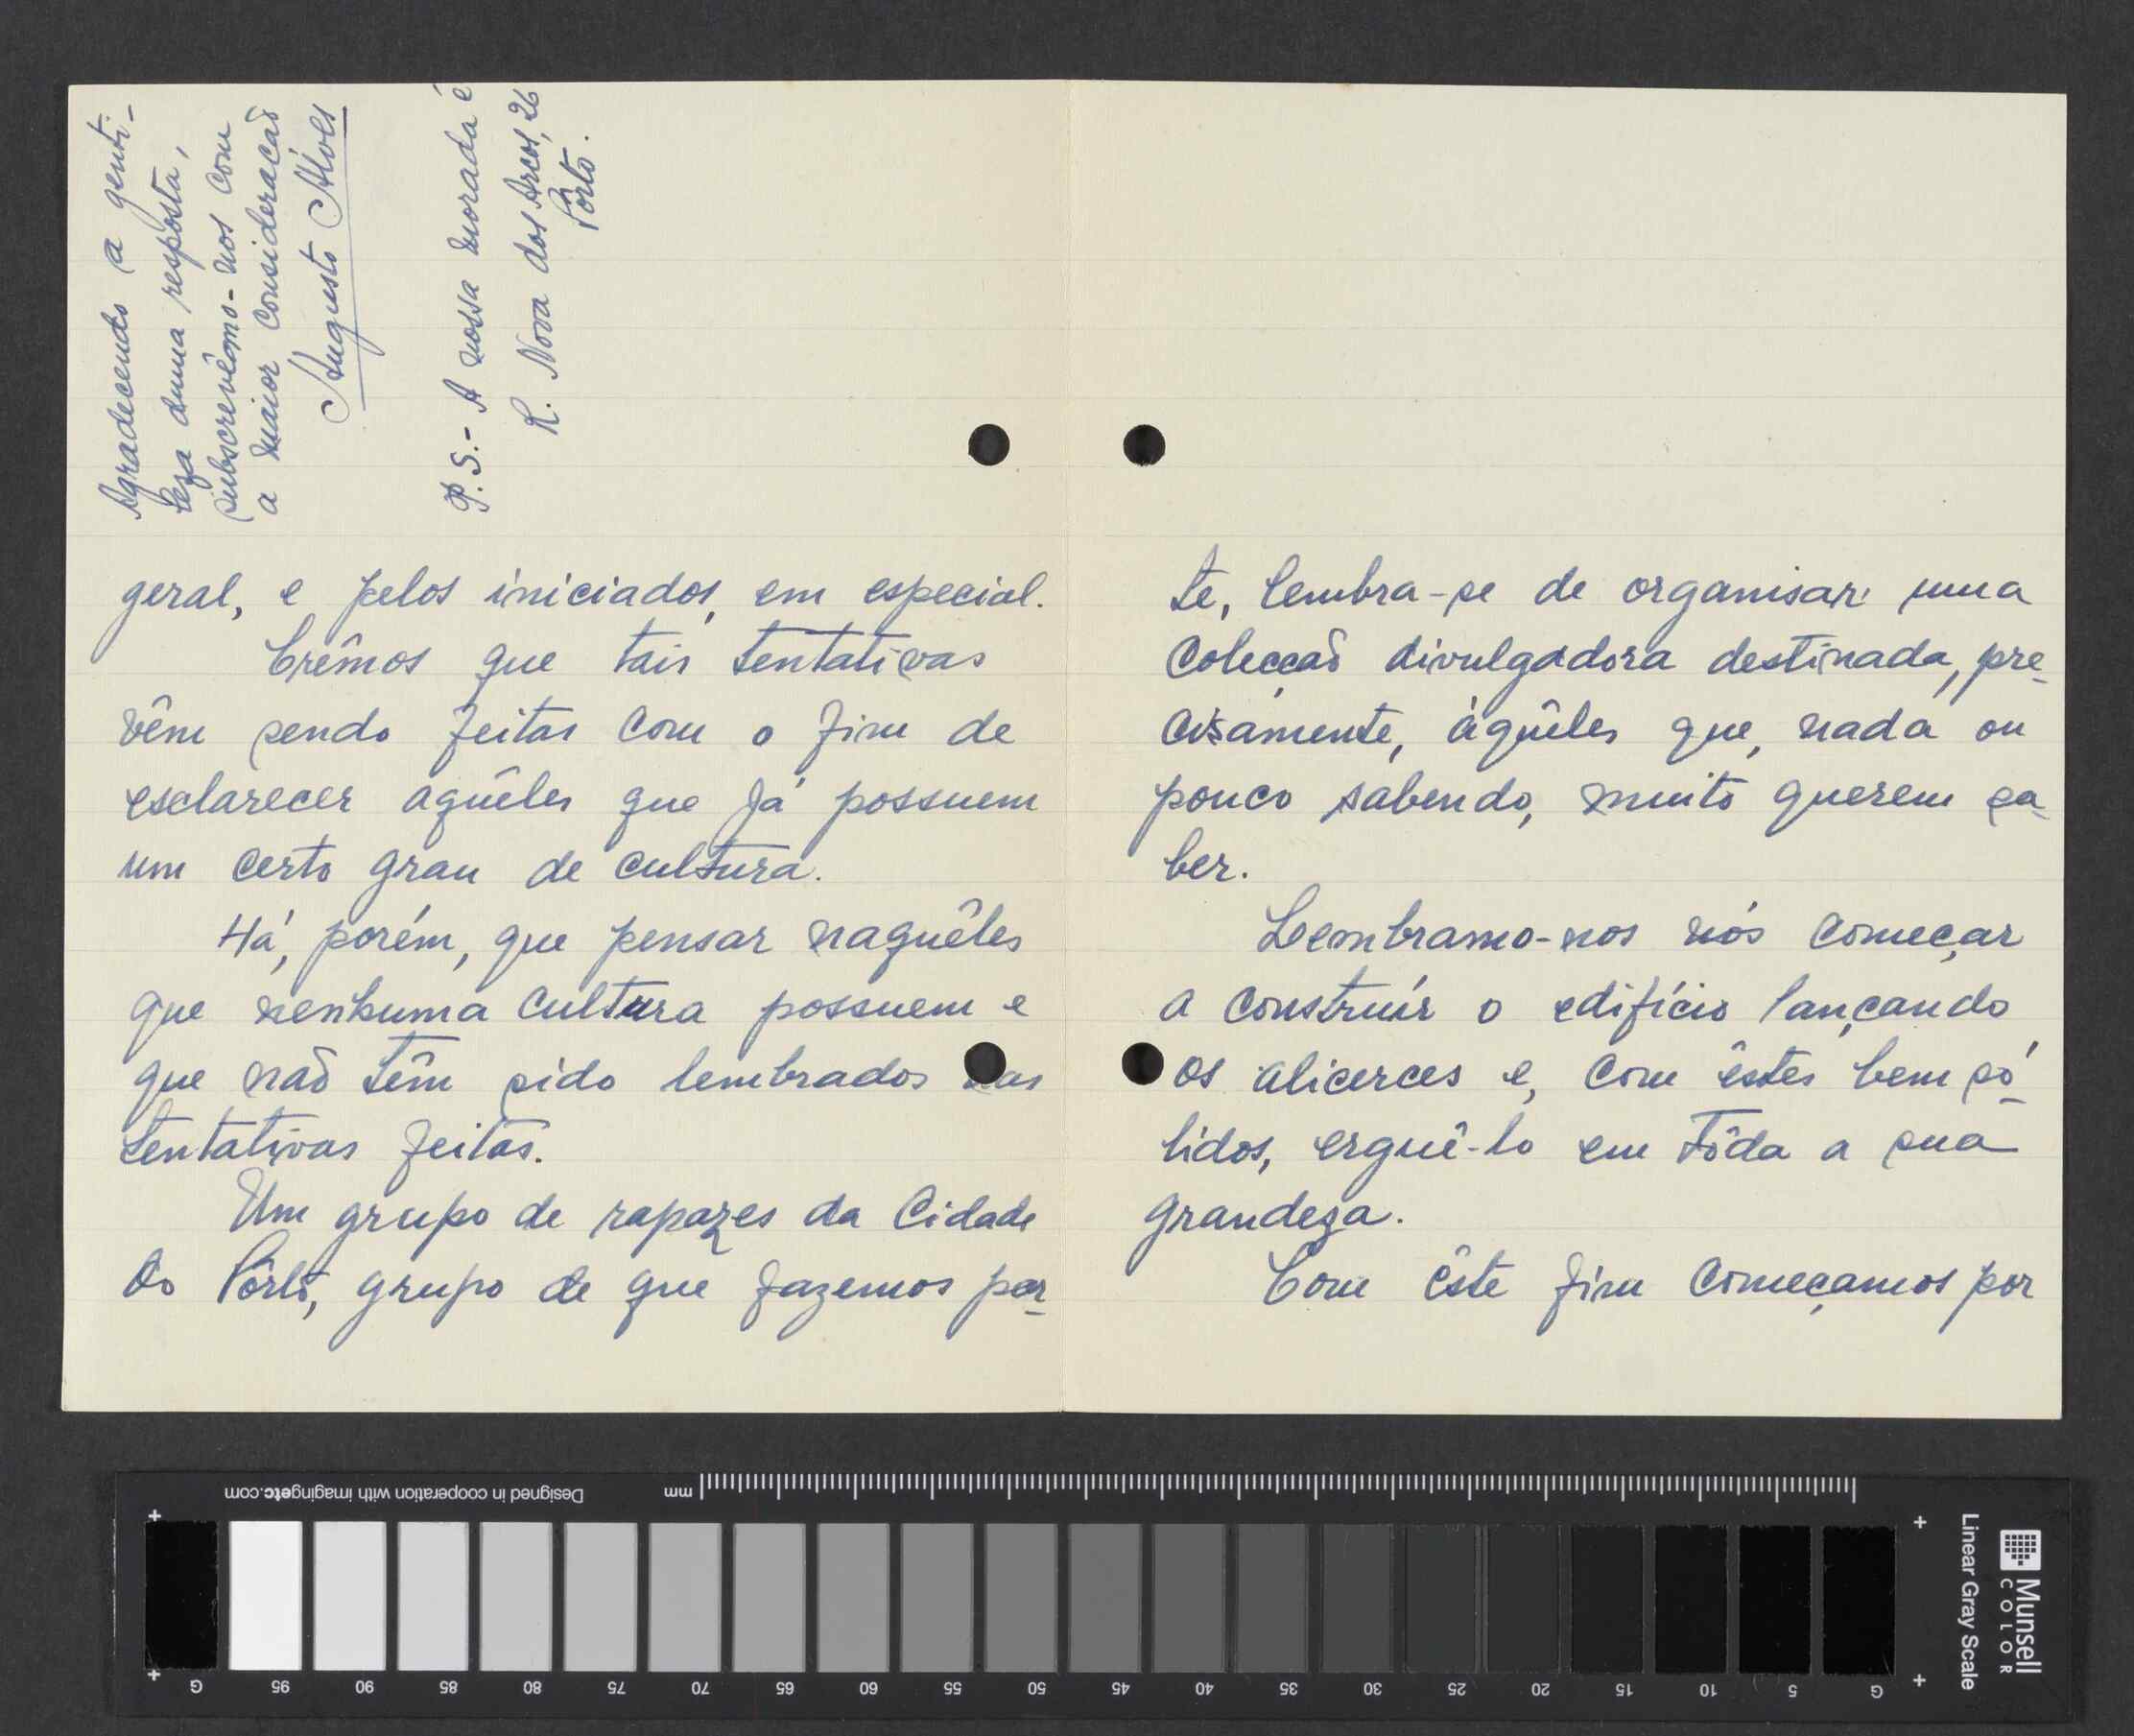 geral, e pelos iniciados, em especial.
Crêmos que tais tentativas
vêm sendo feitas com o fim de
esclarecer aquêles que já possuem
um certo grau de cultura.
Há, porém, que pensar naquêles
que nenhuma cultura possuem e
que não têm sido lembrados nas
tentativas feitas.
Um grupo de rapazes da Cidade
do Pôrto, grupo de que fazemos par-
te, lembra-se de organisar uma
colecção divulgadora destinada, pre-
cisamente, àquêles que, nada ou
pouco sabendo, muito querem sa-
ber.
Lembramo-nos nós começar
a construír o edifício lançando
os alicerces e, com êstes bem só-
lidos, erguê-lo em tôda a sua
grandeza.
Com êste fim começamos por
Agradecendo a genti-
leza duma resposta,
subscrevêmo-nos com
a maior consideração
Augusto Alves
P.S.- A nossa morada é
R. Nova dos Arcos, 26
Pôrto.
Designed in cooperation with imagingetc.com
mm
G 95 90 85 80 75 70 65 60 55 50 45 40 35 30 25 20 15 10 5 G
Munsell
COLOR
Linear Gray Scale